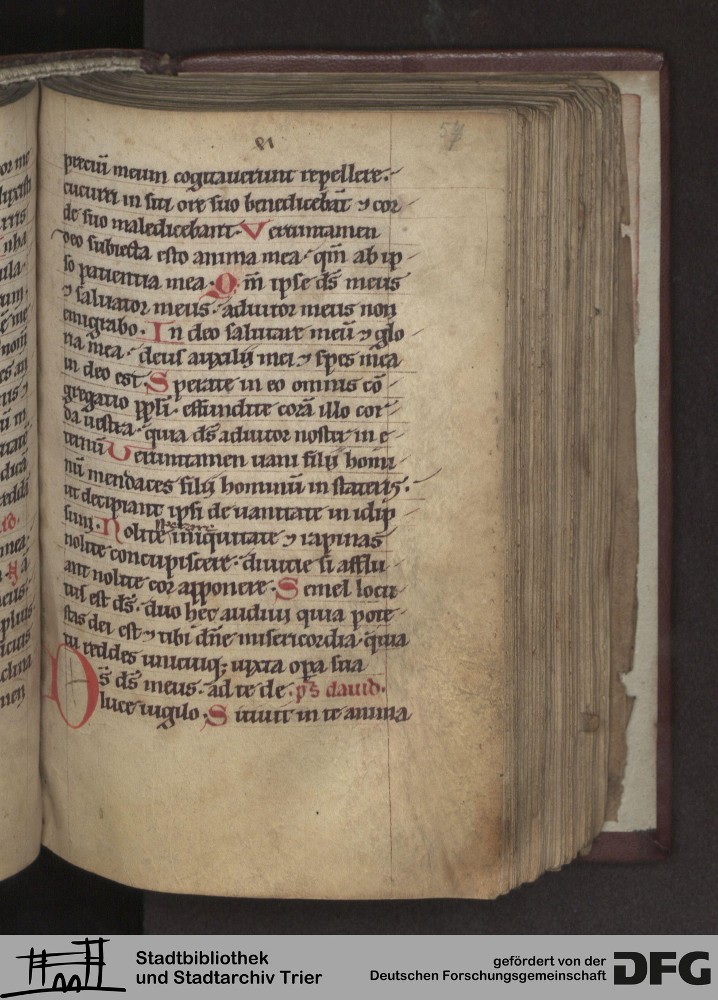 preciū meum cogitauerunt repellere·
cucurri in siti ore suo benedicebāt ⁊ cor
de suo maledicebant· Veruntamen
deo subiecta esto anima mea· qm̄ ab ip
so patientia mea· Qm̄ ipse ds̄ meus
⁊ saluator meus· adiutor meus non
emigrabo· In deo salutare meū ⁊ glo
ria mea· deus auxilij mei ⁊ spes mea
in deo est· Sperate in eo omnis cō
gregatio ppl̄i· effundite corā illo cor
da uestra· quia ds̄ adiutor noster in e
ternū Veruntamen uani filij homi
nū mendaces filij hominū in stateris·
ut decipiant ipsi de uanitate in idip
sum· Nolite iniquitate ⁊ rapinas
nolite concupiscere· diuitie si afflu
ant nolite cor apponere· Semel locu
tus est ds̄· duo hec audiui quia pote
stas dei est ⁊ tibi dn̄e misericordia· quia
tu reddes unicuiq; iuxta opa sua
Ds̄ ds̄ meus· ad te de· ps̄ dauid·
luce uigilo· Sitiuit in te anima
Stadtbibliothek
und Stadtarchiv Trier
gefördert von der
Deutschen Forschungsgemeinschaft
DFG